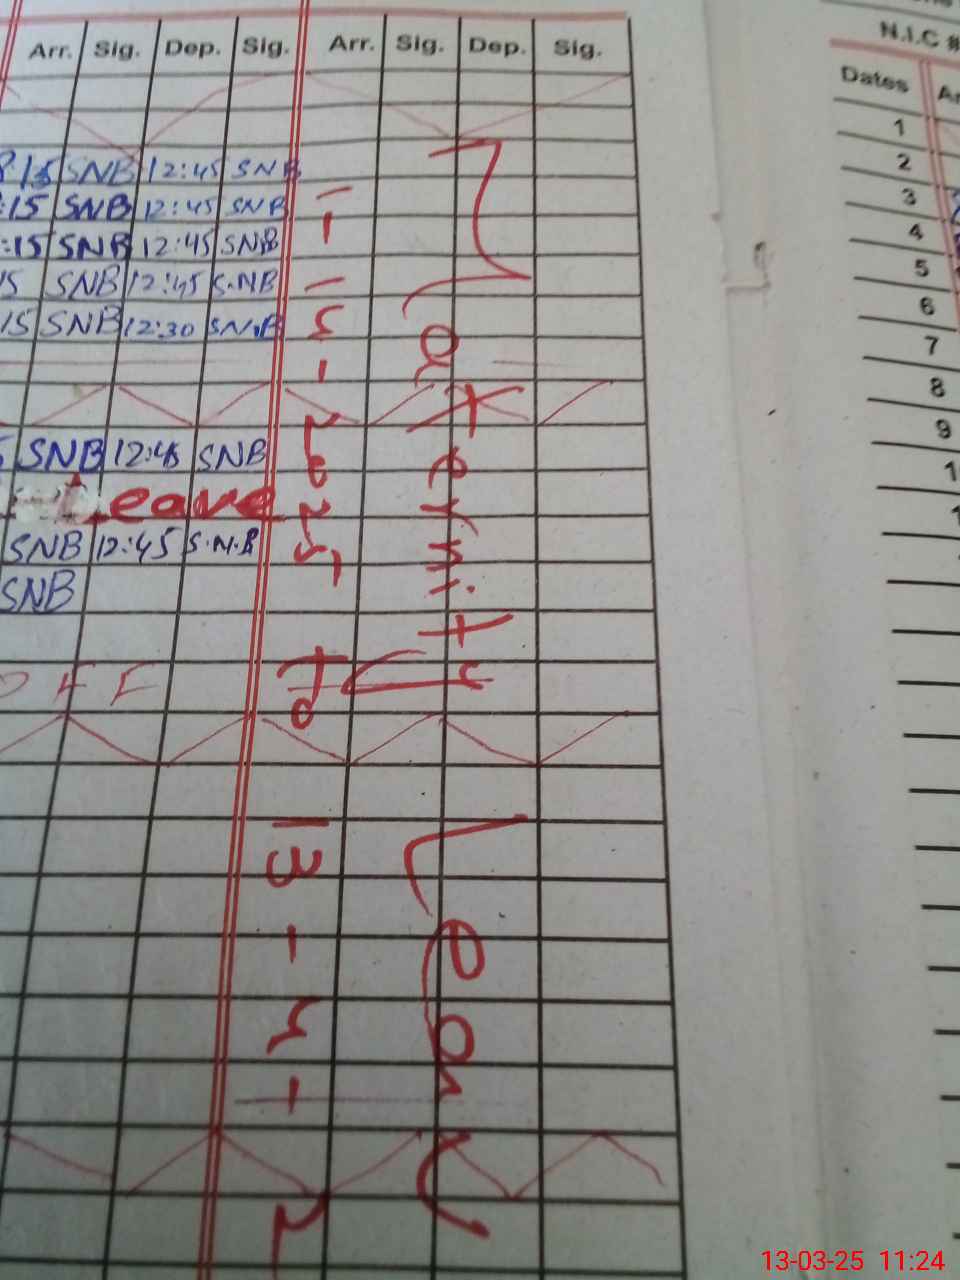 Arr. Sig. Dep. Sig. Arr. Sig. Dep. Sig.
8:15 SNB 12:45 SNB
:15 SNB 12:45 SNB
:15 SNB 12:45 SNB
15 SNB 12:45 S.NB
15 SNB 12:30 SN.B
SNB 12:45 SNB
Leave
SNB 12:45 S.N.B
SNB
OFF
Maternity Leav
2025 to 13-4-2
N.I.C #
Dates Ar
1
2
3
4
5
6
7
8
9
1
1
13-03-25 11:24